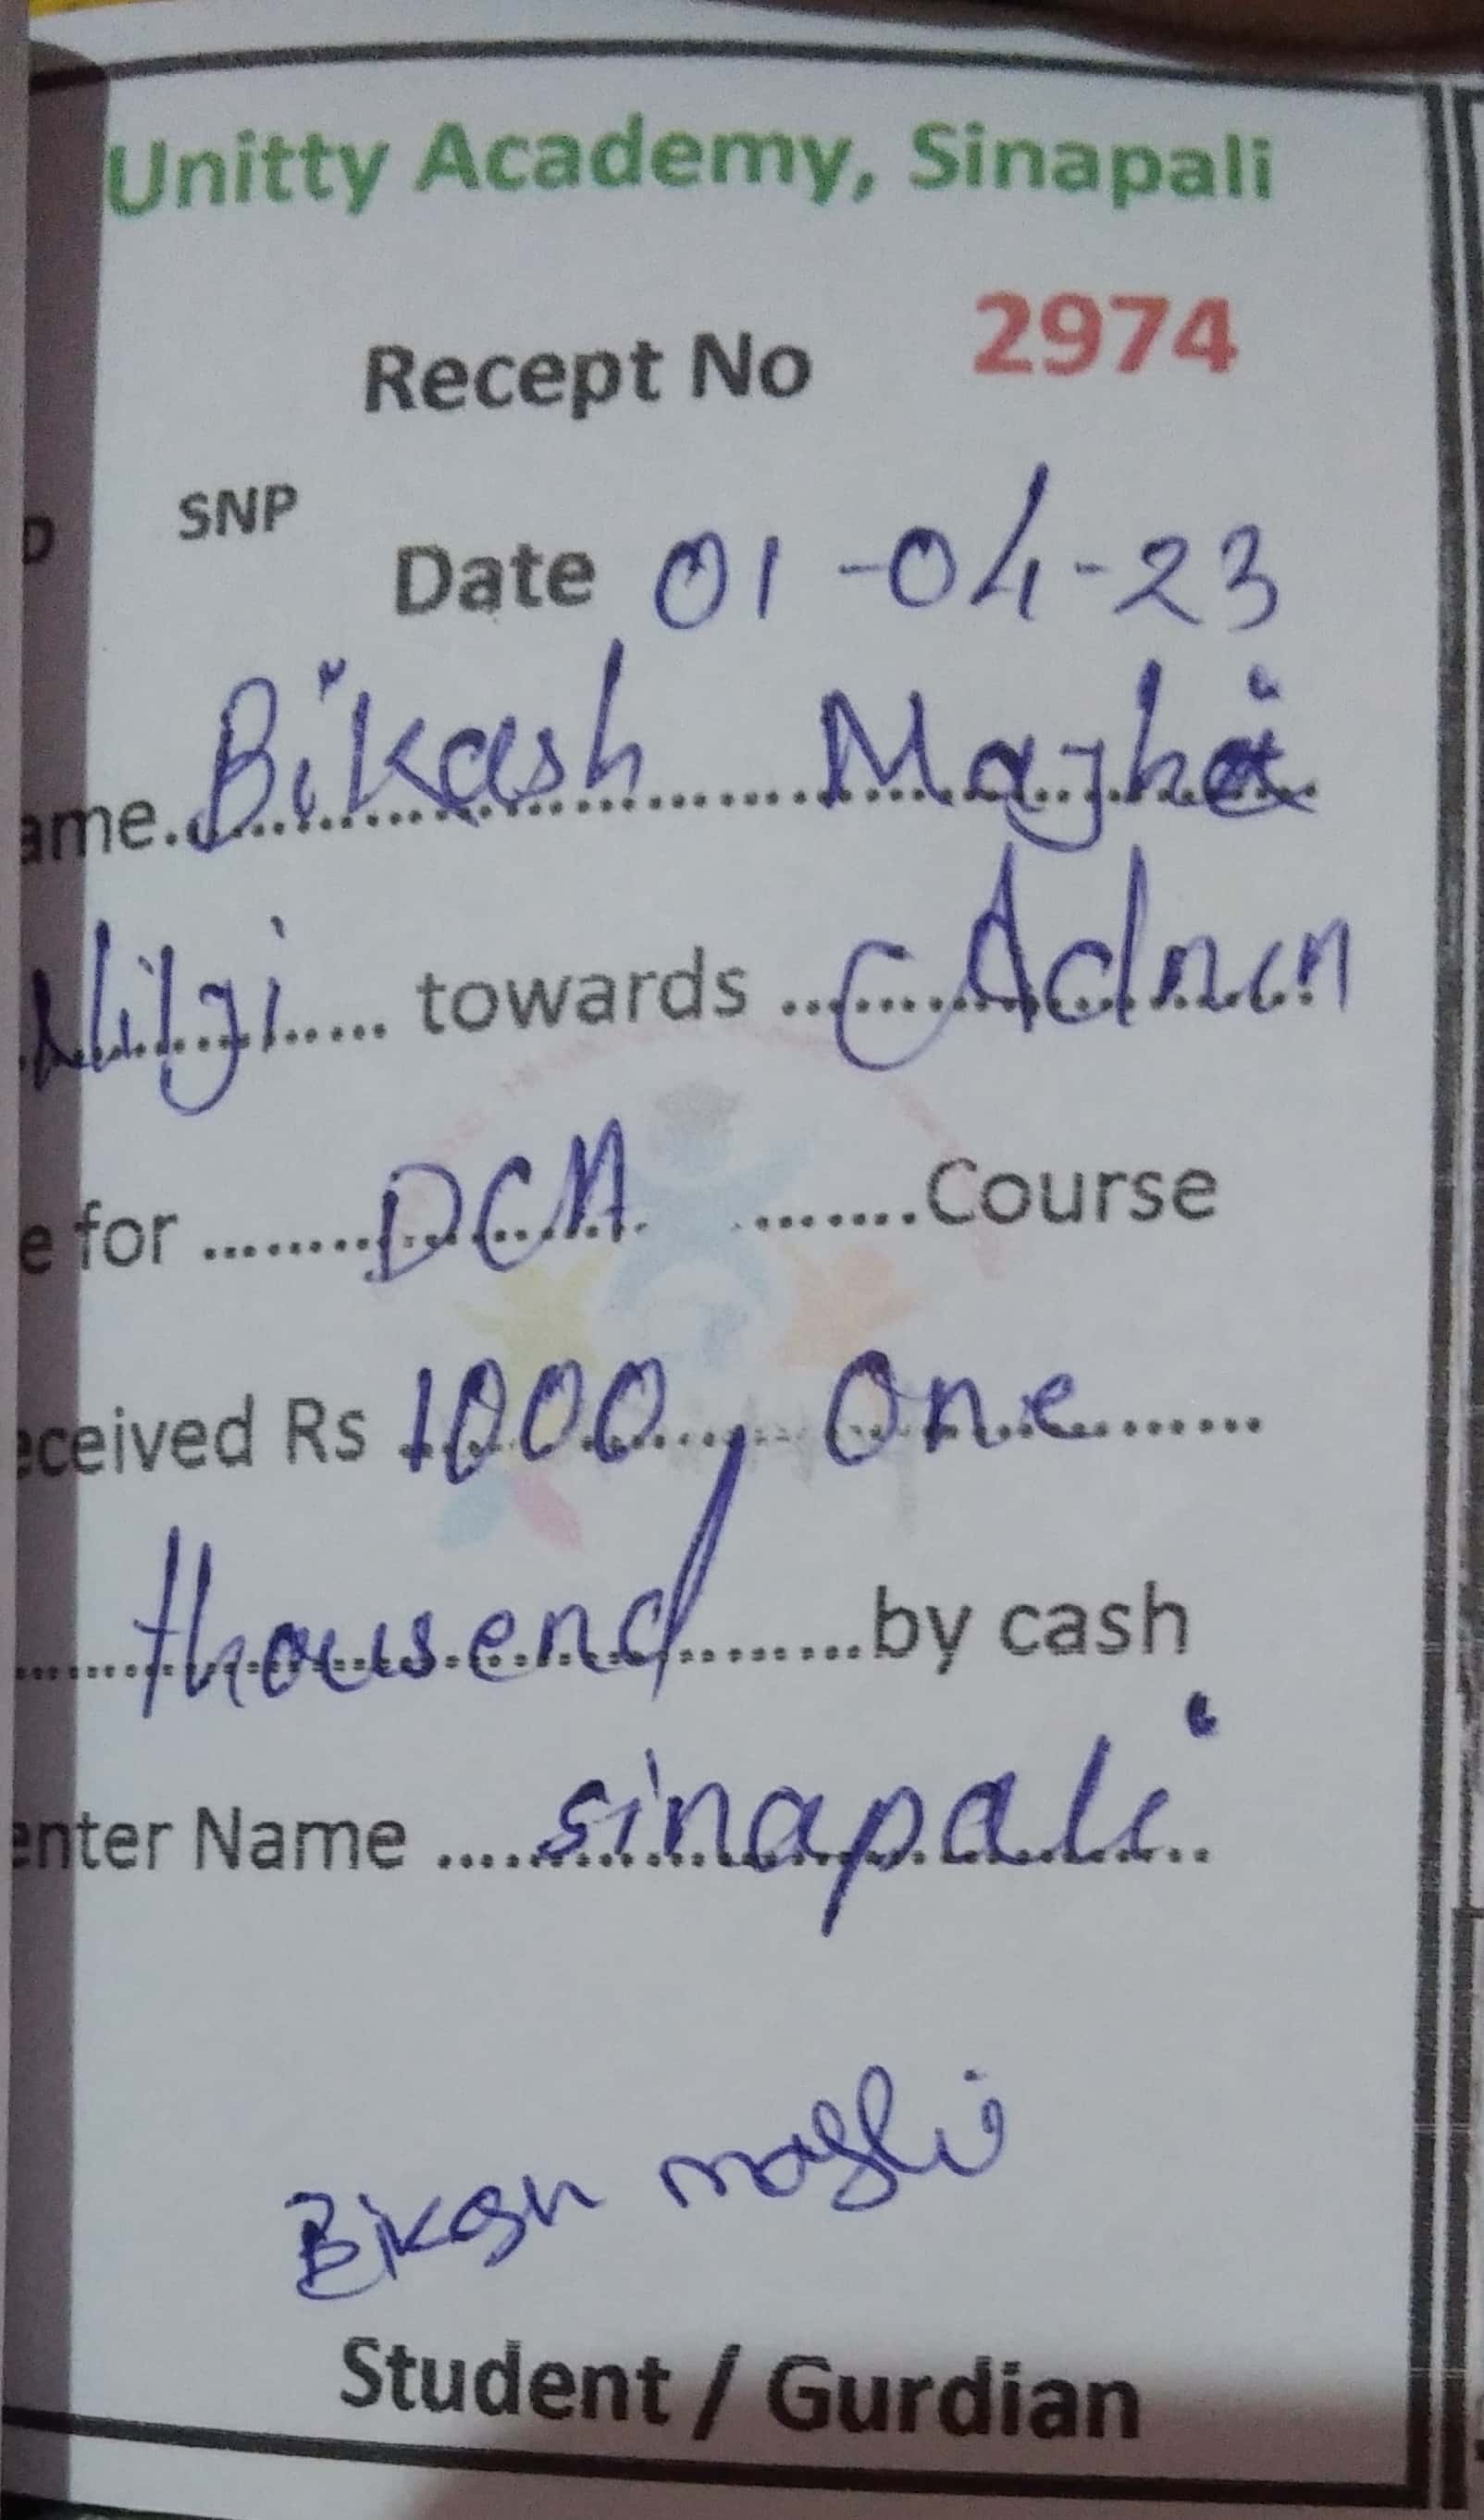 Unitty Academy, Sinapali
Recept No 2974
SNP
Date 01-04-23
ame. Bikash Majhi
Nilji towards Admn
e for DCA Course
eceived Rs 1000, One
thousend by cash
enter Name sinapali
Bikash majhi
Student / Gurdian